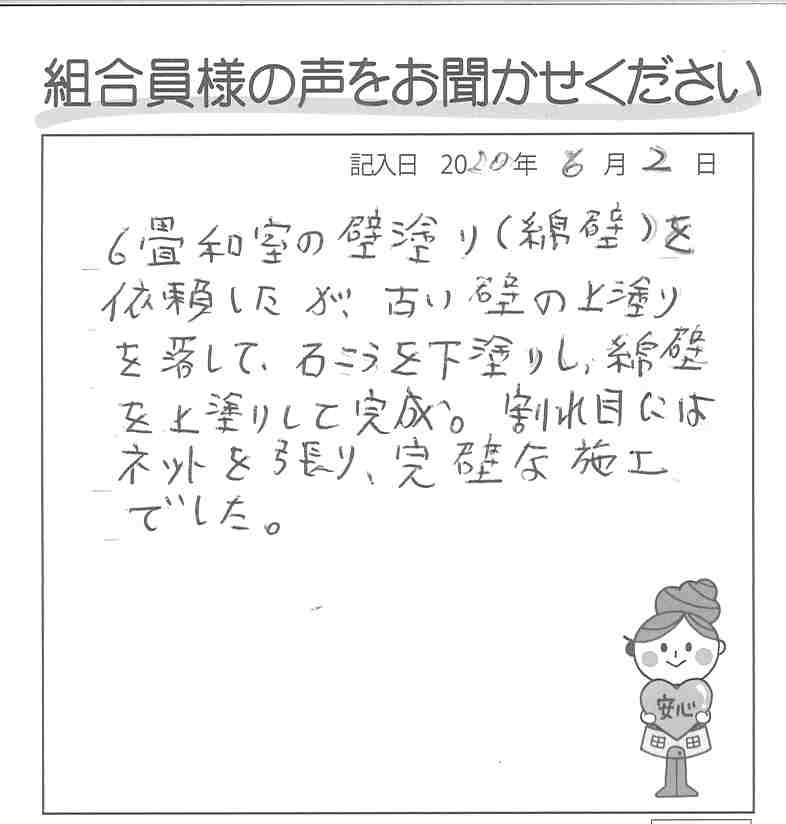 組合員様の声をお聞かせください
記入日 2020年 6月 2日
6畳和室の壁塗り(綿壁)を
依頼したが、古い壁の上塗り
を落して、石こうを下塗りし、綿壁
を上塗りして完成。割れ目には
ネットを張り、完壁な施工
でした。
安心